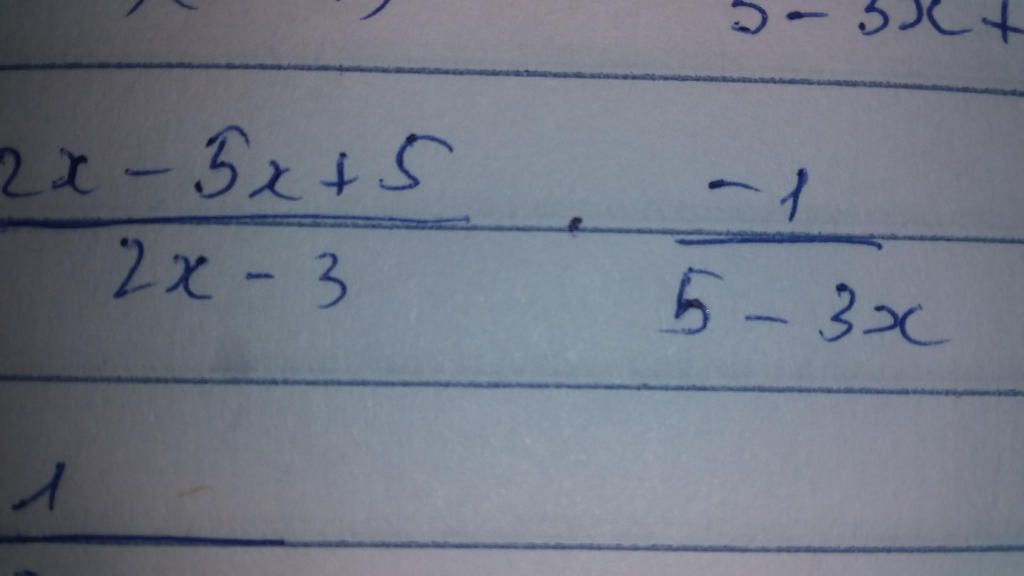 5 - 3x +
2x - 5x + 5 / 2x - 3 · -1 / 5 - 3x
1